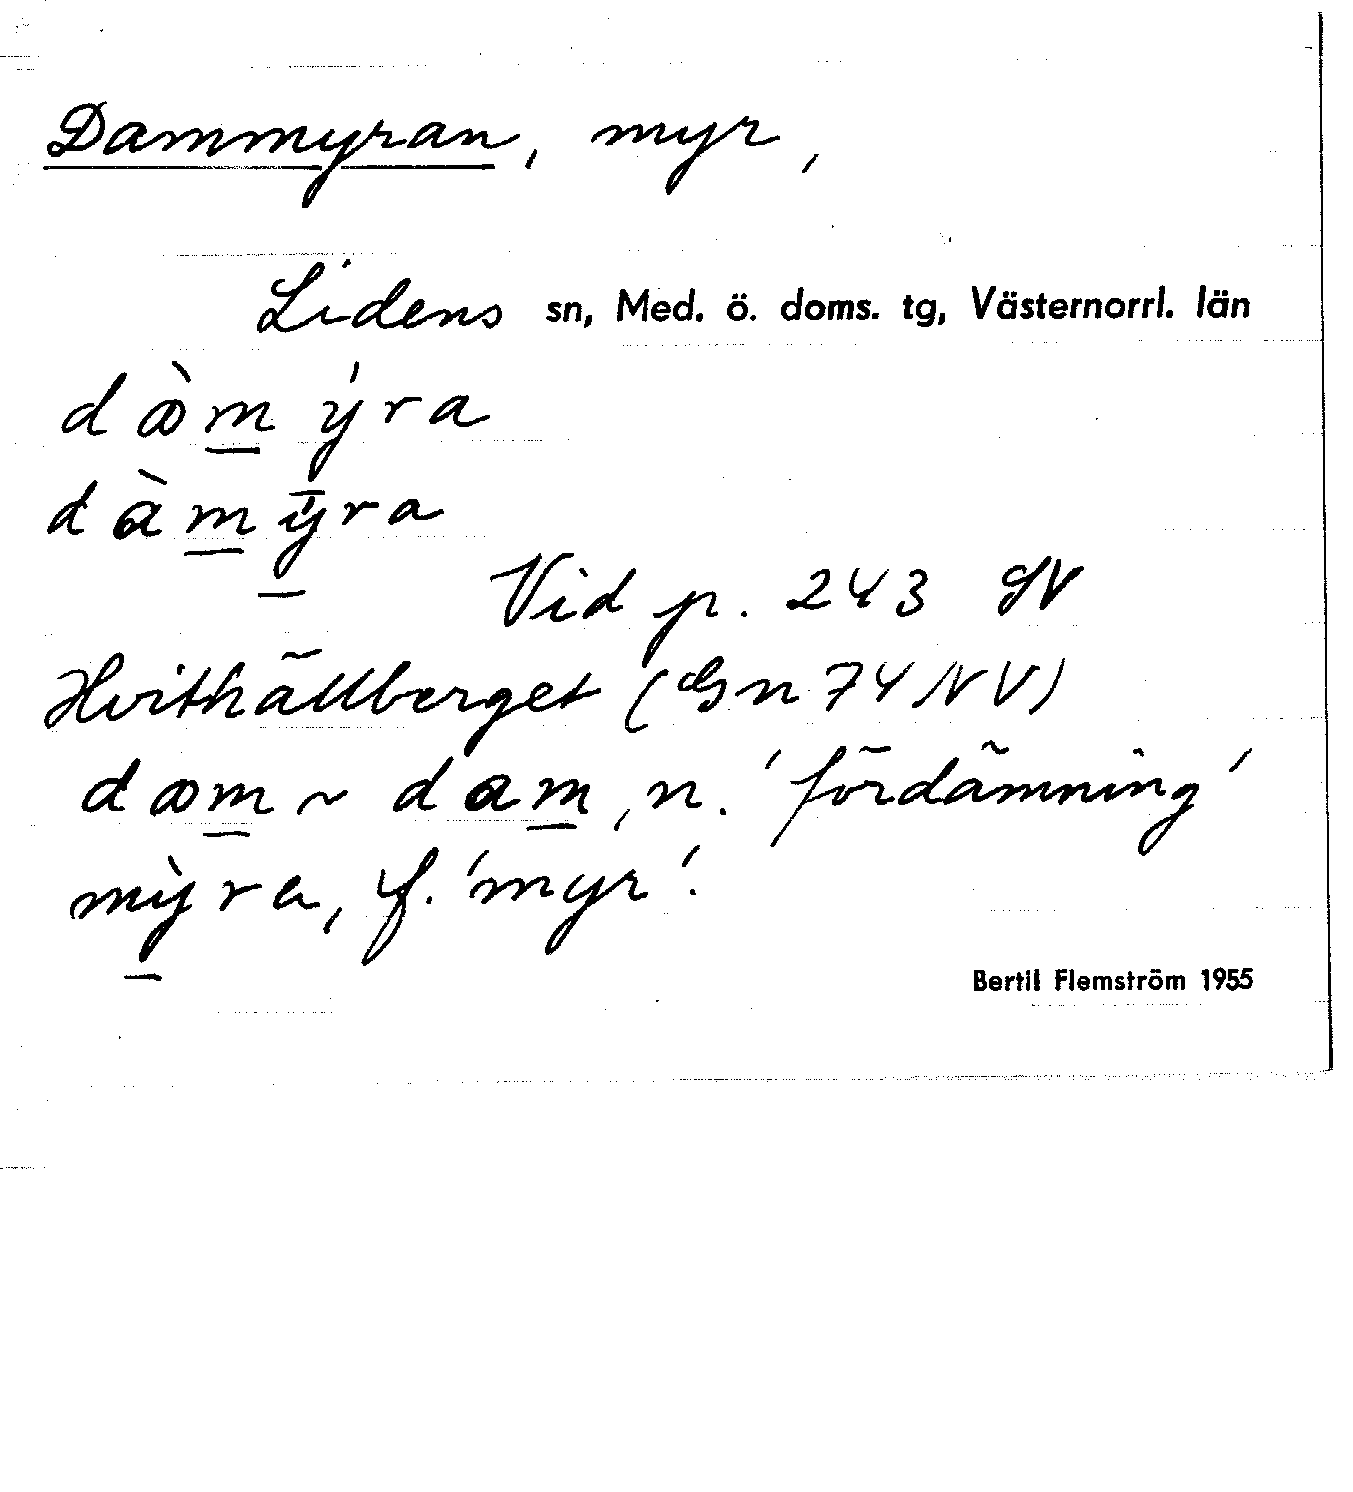 Dammyran, myr,
Lidens sn, Med. ö. doms. tg, Västernorrl. län
dɷ̀m̱ ýra
dàm̱ ȳ́ra
Vid p. 243 SV
Hvithällberget (Gn 74 NV)
dɷm̱ ~ dam̱, n. 'fördämning'
mỳ̱ra, f. 'myr'.
Bertil Flemström 1955